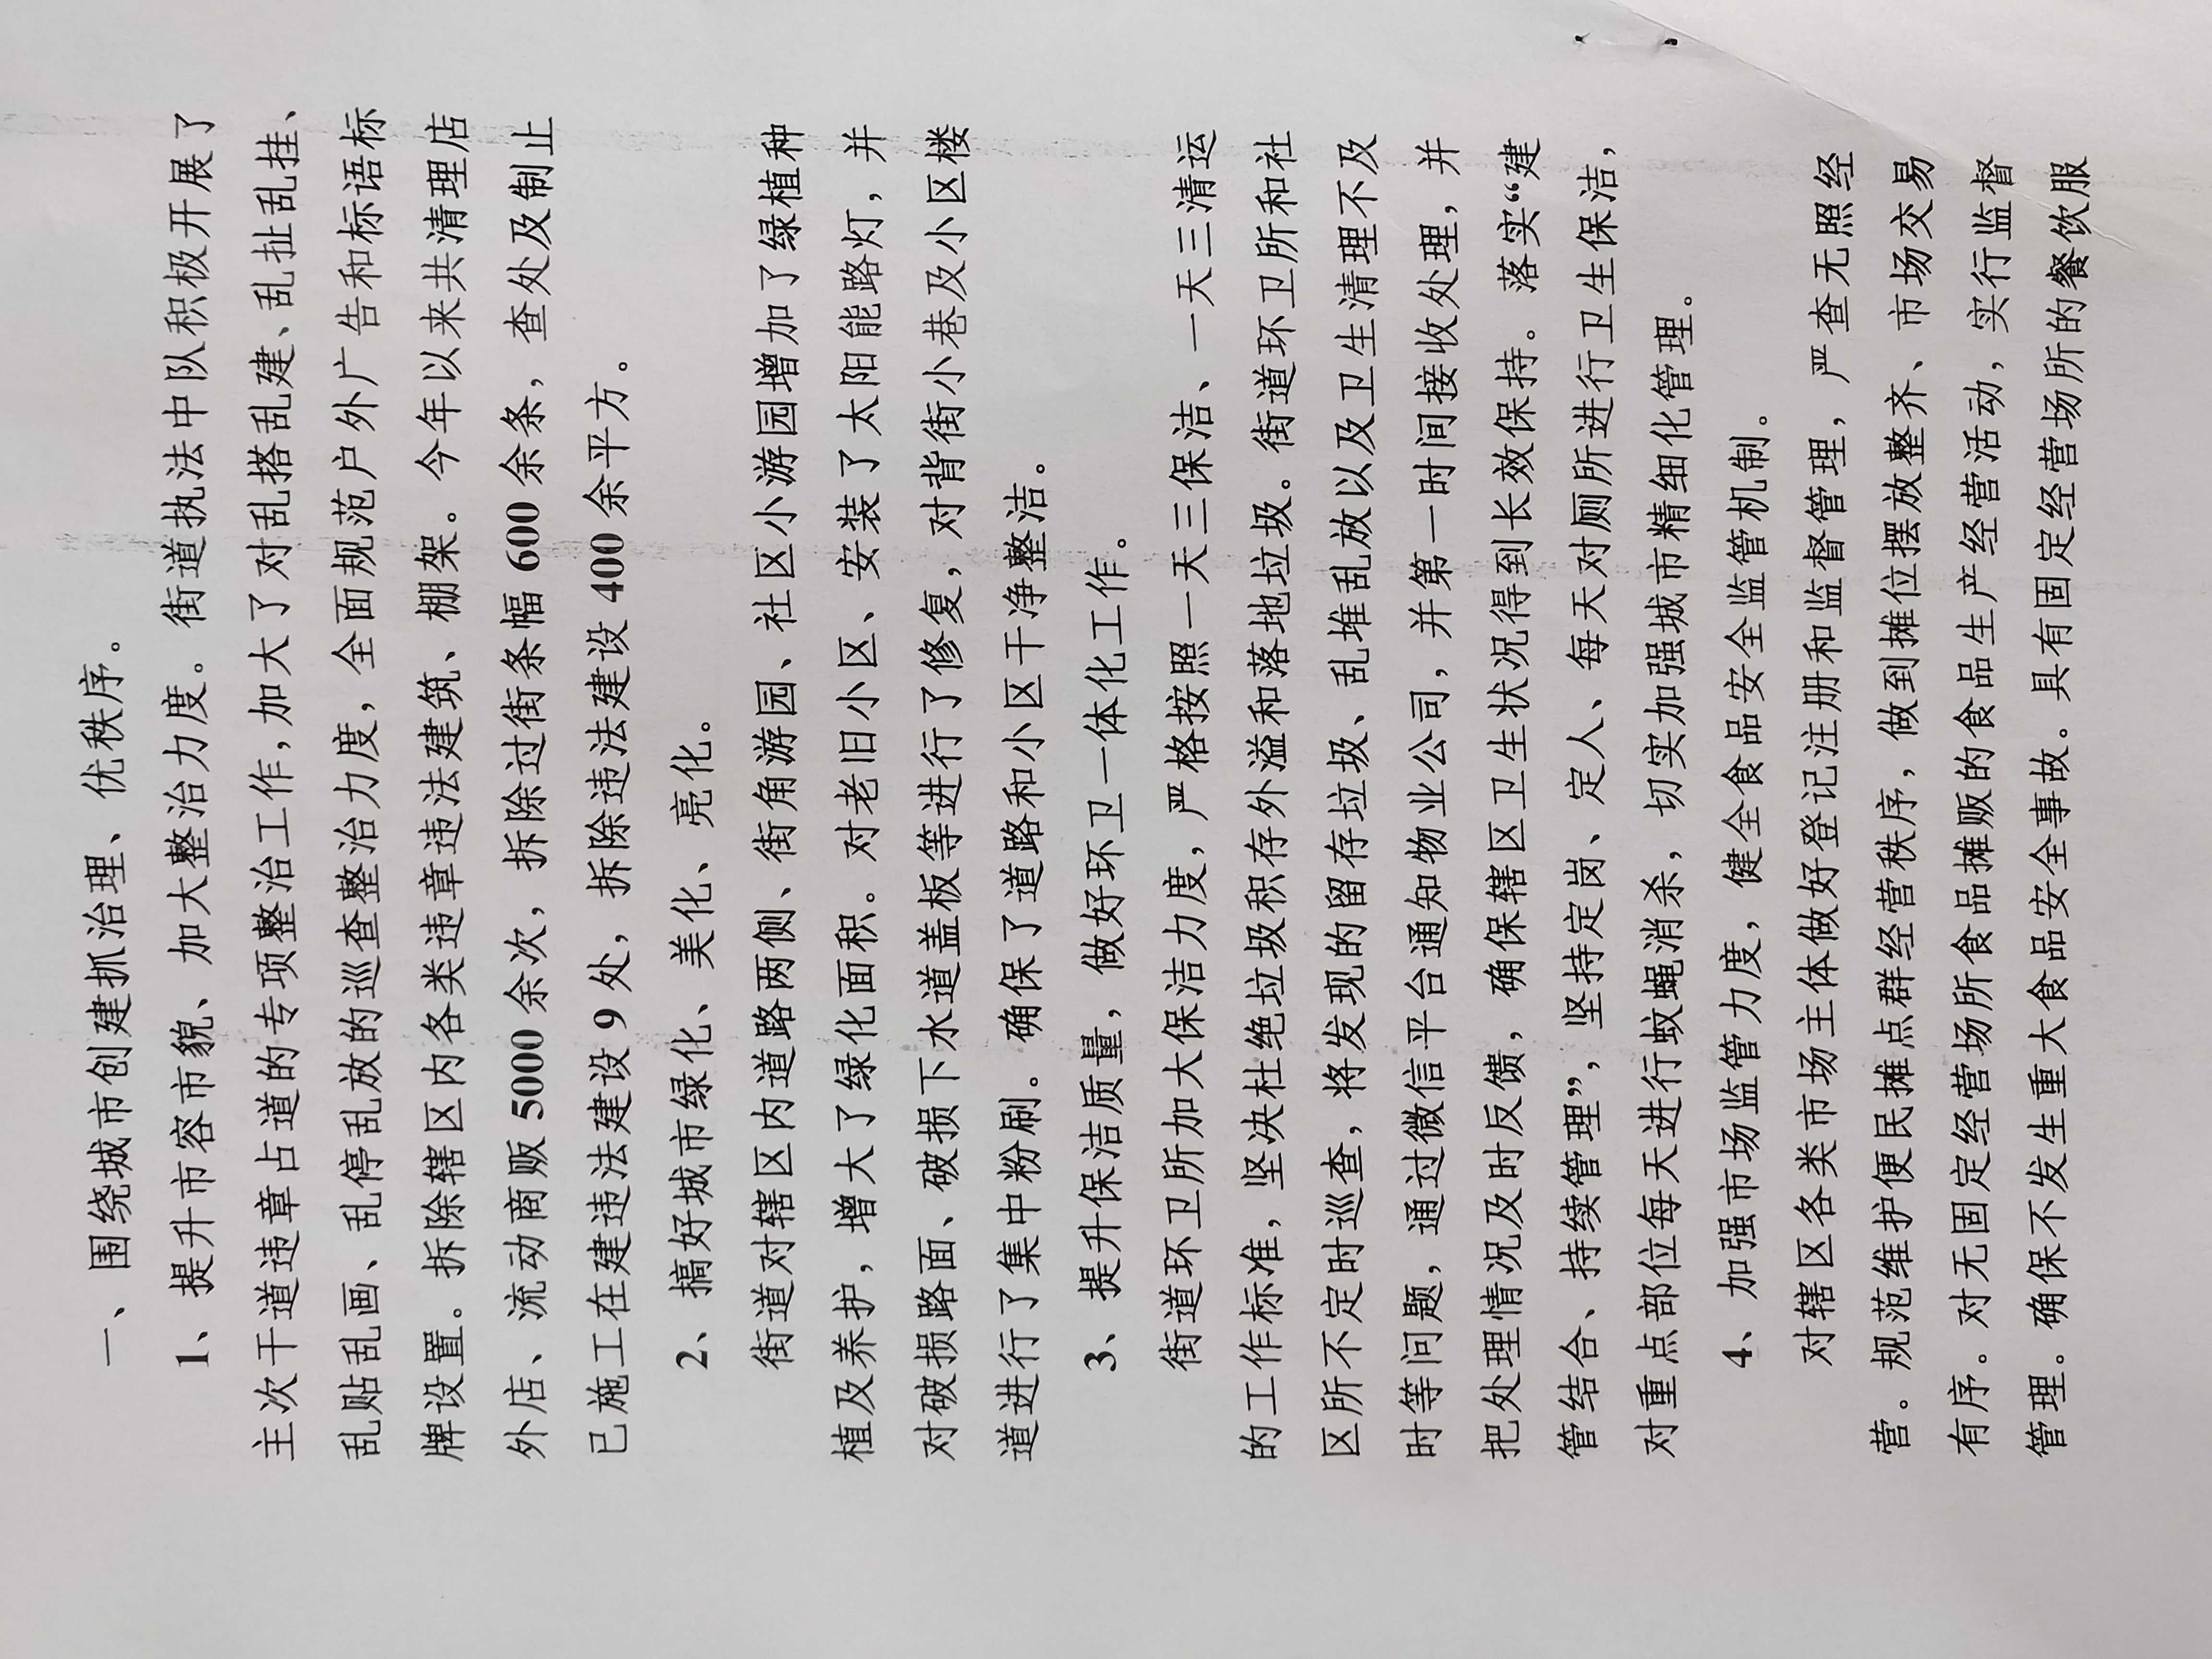 一、围绕城市创建抓治理、优秩序。
1、提升市容市貌、加大整治力度。街道执法中队积极开展了
主次干道违章占道的专项整治工作,加大了对乱搭乱建、乱扯乱挂、
乱贴乱画、乱停乱放的巡查整治力度，全面规范户外广告和标语标
牌设置。拆除辖区内各类违章违法建筑、棚架。今年以来共清理店
外店、流动商贩 5000 余次，拆除过街条幅 600 余条，查处及制止
已施工在建违法建设 9 处，拆除违法建设 400 余平方。
2、搞好城市绿化、美化、亮化。
街道对辖区内道路两侧、街角游园、社区小游园增加了绿植种
植及养护，增大了绿化面积。对老旧小区、安装了太阳能路灯，并
对破损路面、破损下水道盖板等进行了修复，对背街小巷及小区楼
道进行了集中粉刷。确保了道路和小区干净整洁。
3、提升保洁质量，做好环卫一体化工作。
街道环卫所加大保洁力度，严格按照一天三保洁、一天三清运
的工作标准，坚决杜绝垃圾积存外溢和落地垃圾。街道环卫所和社
区所不定时巡查，将发现的留存垃圾、乱堆乱放以及卫生清理不及
时等问题，通过微信平台通知物业公司，并第一时间接收处理，并
把处理情况及时反馈，确保辖区卫生状况得到长效保持。落实“建
管结合、持续管理”，坚持定岗、定人、每天对厕所进行卫生保洁，
对重点部位每天进行蚊蝇消杀，切实加强城市精细化管理。
4、加强市场监管力度，健全食品安全监管机制。
对辖区各类市场主体做好登记注册和监督管理，严查无照经
营。规范维护便民摊点群经营秩序，做到摊位摆放整齐、市场交易
有序。对无固定经营场所食品摊贩的食品生产经营活动，实行监督
管理。确保不发生重大食品安全事故。具有固定经营场所的餐饮服